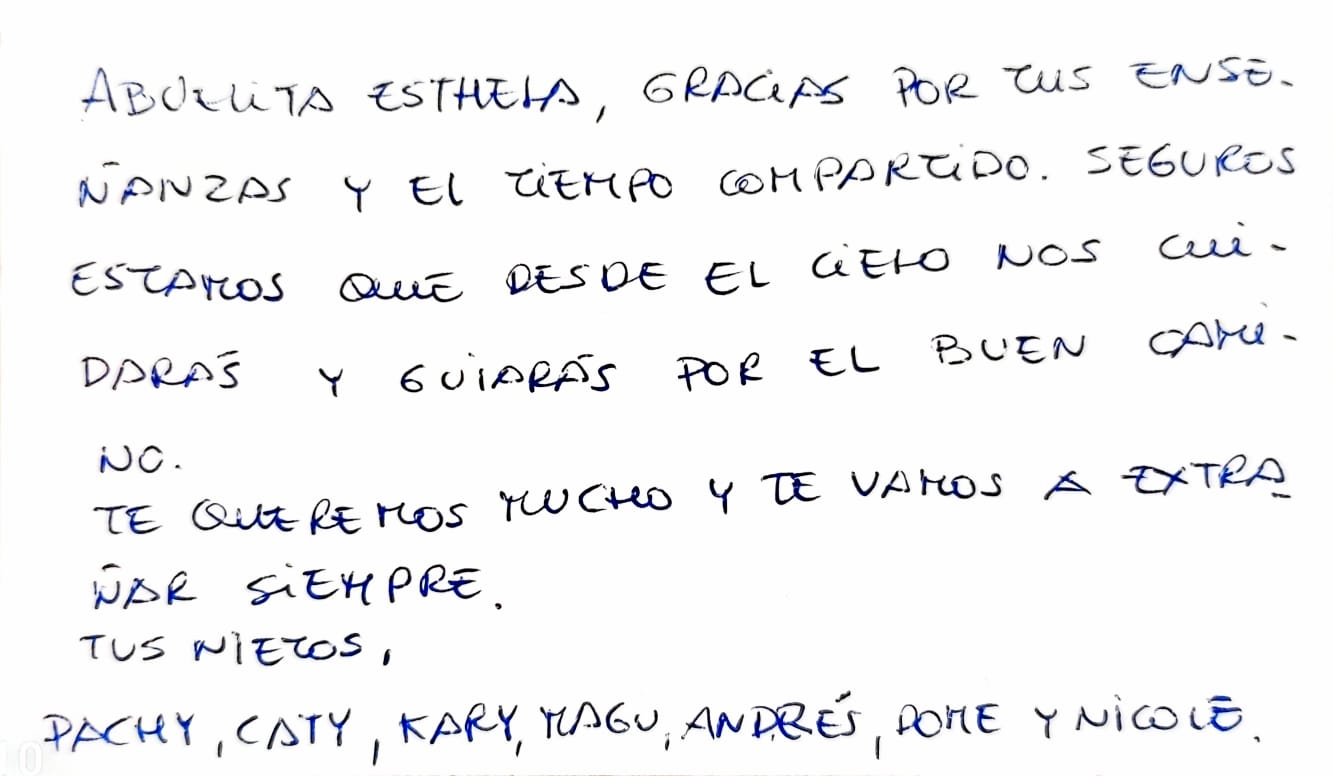 ABUELITA ESTHELA, GRACIAS POR TUS ENSE-
ÑANZAS Y EL TIEMPO COMPARTIDO. SEGUROS
ESTAMOS QUE DESDE EL CIELO NOS CUI-
DARÁS Y GUIARÁS POR EL BUEN CAMI-
NO.
TE QUEREMOS MUCHO Y TE VAMOS A EXTRA_
ÑAR SIEMPRE.
TUS NIETOS,
PACHY, CATY, KARY, MAGU, ANDRÉS, DOME Y NICOLE.